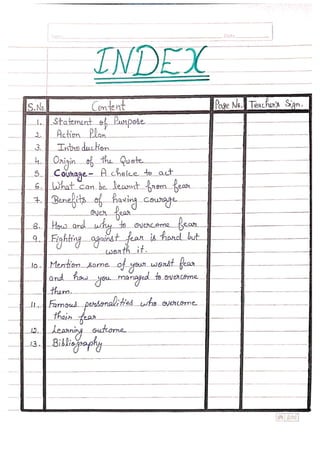 Date
INDEX
S.No. Content Page No. Teacher's Sign.
1. Statement of Purpose
2. Action Plan
3. Introduction
4. Origin of the Quote
5. Courage - A choice to act
6. What can be learnt from fear
7. Benefits of having courage
over fear
8. How and why to overcome fear
9. Fighting against fear is hard but
worth it.
10. Mention some of your worst fear
and how you managed to overcome
them.
11. Famous personalities who overcome
their fear
12. Learning outcome
13. Bibliography